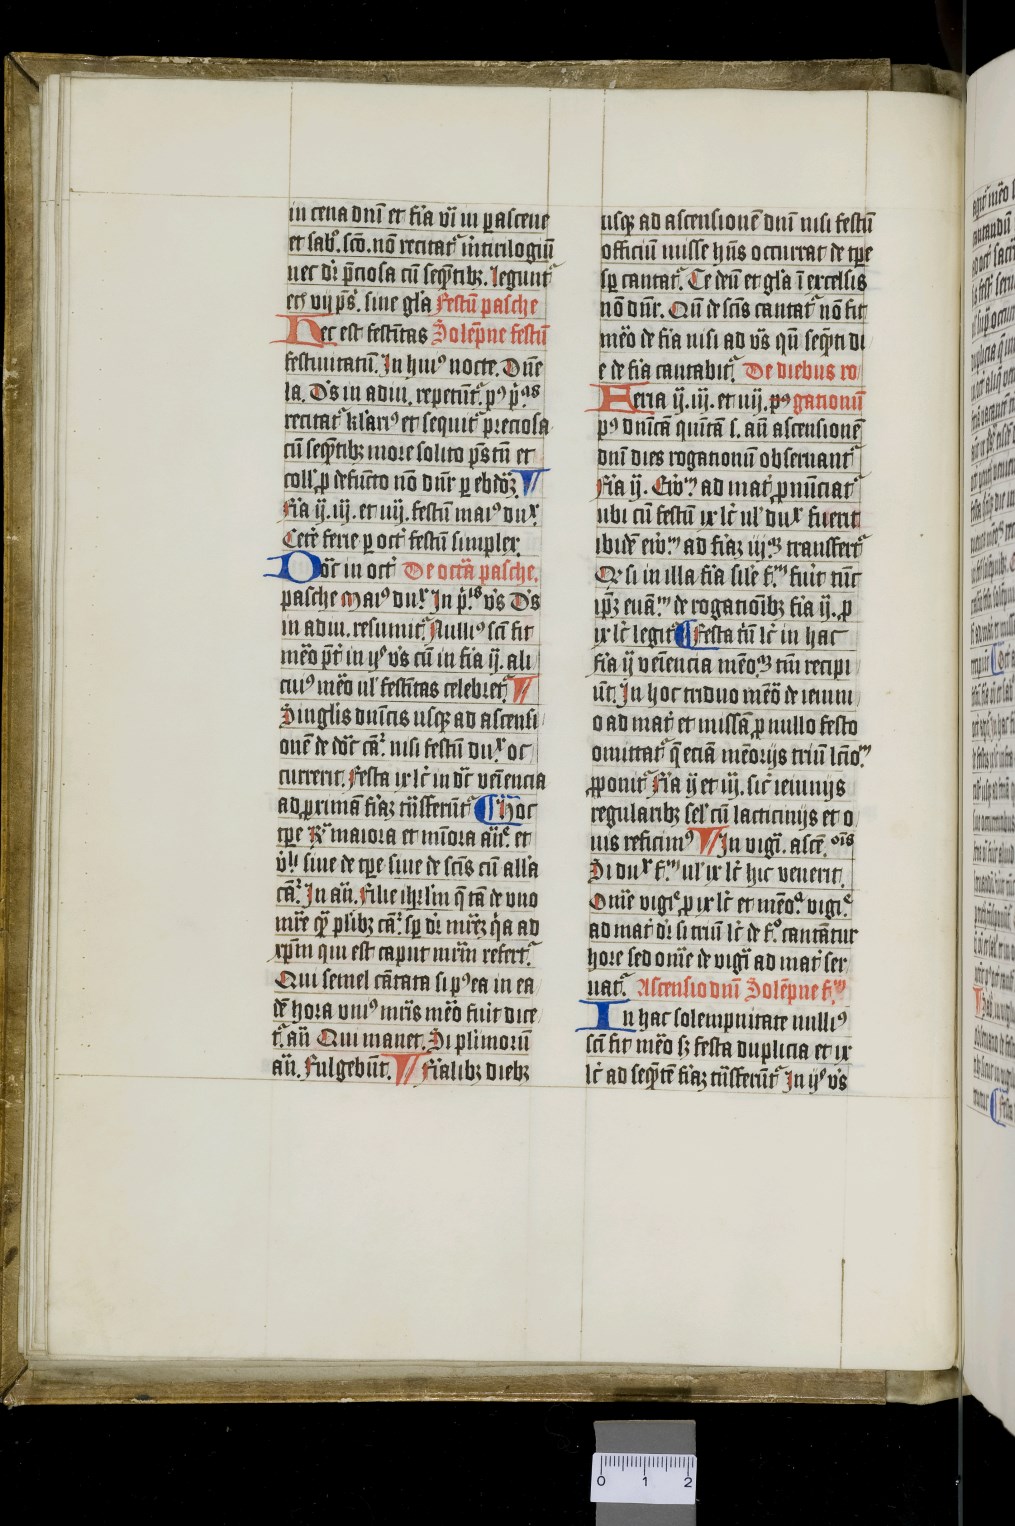 in cena dnī et fīa vī in ꝑasceue
et sabō. scō. nō recitat᷑ inticilogiū
nec dr̄ p̄ciosa cū seq̄ntibꝫ. legunt᷑
etꝫ vij ps̄. sine gl̄a Festū pasche
Hec est festītas Solēpne festū
festiuitatū. In huiꝰ nocte. Dūe
la. Ds̄ in adiu. repetūt᷑. pꝰ
recitat᷑ kl̄ariꝰ et sequit᷑ preciosa
cū seq̄ntibꝫ more solito pꝰ stū et
coll̄ ꝓ defuncto nō dn̄r ꝑ ebdōꝫ
Fīa ij. iij. et iiij. festū maiꝰ dux
Cetē ferie ꝑ oct̄ festū simplex
Dōc̄ in oct̄ De octā pasche.
pasche Maiꝰ dux In p̄is vs̄ Ds̄
in adiu. resumit᷑ Nulliꝰ scī fit
mēō pt̄ in ijs vs̄ cū in fīa ij. ali
cuiꝰ mēō ul̄ festītas celebret᷑
Singl̄is dn̄icis usqꝫ ad ascensi
onē de dōc̄ cāt̄ nisi festū dux oc
currerit. Festa ix lc̄ in dōc̄ venīencia
ad ꝓximam fīaꝫ tn̄sferūt᷑ Hoc
tꝑe R maiora et mīora an̄e et
v̄li siue de tꝑe siue de scīs cū all̄a
cāt̄. In an̄. Filie ihr̄lm q̄ tā de vno
mr̄e qꝫ plibꝫ cāt̄ sꝑ dr̄ mr̄eꝫ q̄a ad
xp̄m qui est caput mr̄im refert᷑
Qui semel cātata si pꝰea in ea
dē hora vniꝰ mr̄is mēō fuit dice
t᷑. an̄ Qui manet. Si plimorū
an̄. Fulgebūt. Fīalibꝫ diebꝫ
usqꝫ ad ascensionē dnī nisi festū
officiū misse hn̄s occurrat de tꝑe
sꝑ cantat᷑. Te deū et glā ī excelsis
nō dn̄r. Qn̄ de scīs cantat᷑ nō fit
mēō de fīa nisi ad vs̄ qn̄ seq̄nti di
e de fīa cantabit᷑. De diebus ro
Feria ij. iij. et iiij. pꝰ gationū
pꝰ dn̄icā quītā s. an̄ ascensionē
dnī dies rogationū obseruant᷑
Fīa ij. Ewm ad mat̄ ꝓnūciat᷑
ubi cū festū ix lc̄ ul̄ dux fuerit
ibidē ewm ad fīaꝫ iij transfert᷑
Qꝫ si in illa fīa sil̄e fm fuit tūc
ipꝫ euāꝫ de rogatiōibꝫ fīa ij. ꝓ
ix lc̄ legit᷑ Festa tn̄ lc̄ in hac
fīa ij venīencia mēōꝫ tm̄ recipi
ūt. In hoc triduo mēō de ieiuni
o ad mat̄ et missā ꝓ nullo festo
omittat᷑ q̄ eciā mēorijs triū lcīom
ꝓponit᷑ Fīa ij et iij. sic̄ ieiunijs
regularibꝫ sel̄ cū lacticinijs et o
uis reficimꝰ In vigī. ascē. oīs
Si dux fm ul̄ ix lc̄ hic venerit.
Om̄e vigie ꝓ ix lc̄ et mēōa vigie
ad mat̄ dr̄ si triū lc̄ de fo cantātur
hore sed om̄e de vigī ad mat̄ ser
uat᷑. Ascensio dnī Solēpne fm
In hac solempnitate nulliꝰ
scī fit mēō sꝫ festa duplicia et ix
lc̄ ad seq̄tē fīaꝫ tn̄sferūt᷑ In ijs vs̄